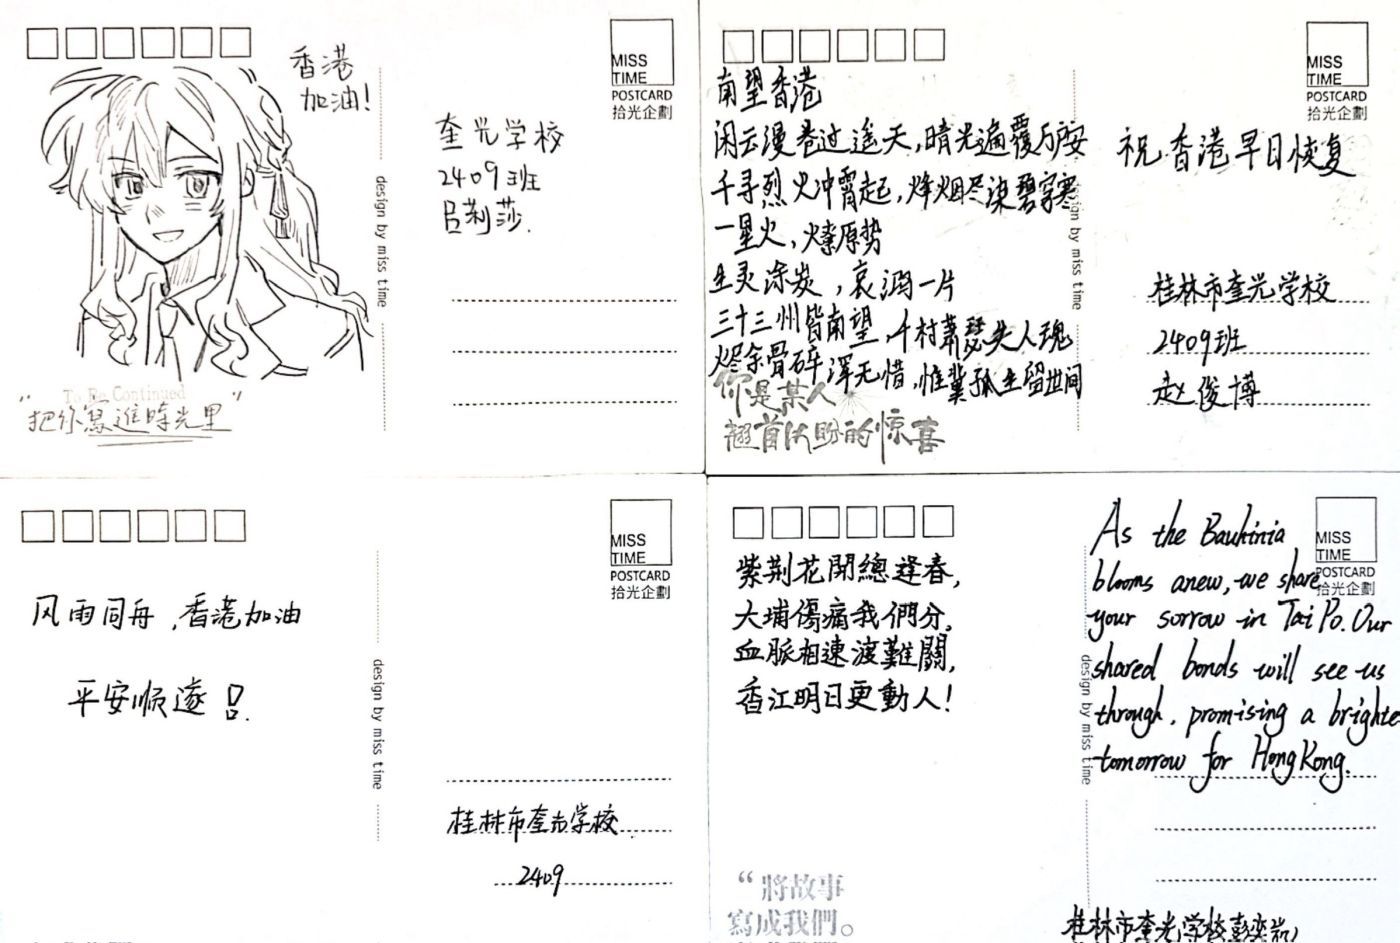 香港
加油!
MISS
TIME
POSTCARD
拾光企劃
奎光学校
2409班
吕莉莎.
design by miss time
To Be Continued
"把你寫進時光里"
MISS
TIME
POSTCARD
拾光企劃
南望香港
闲云漫卷过遥天,晴光遍覆万户安
千寻烈火冲霄起,烽烟尽染碧穹寒
一星火,燎原势
生灵涂炭,哀鸿一片
三十三州皆南望,千村萧瑟失人魂
烬余骨碎浑无惜,惟冀孤生留世间
你是某人
翘首以盼的惊喜
design by miss time
祝香港早日恢复
桂林市奎光学校
2409班
赵俊博
MISS
TIME
POSTCARD
拾光企劃
风雨同舟,香港加油
平安顺遂!
design by miss time
桂林市奎光学校
2409
MISS
TIME
POSTCARD
拾光企劃
紫荆花開總逢春,
大埔傷痛我們分,
血脈相連渡難關,
香江明日更動人!
"將故事
寫成我們。
design by miss time
As the Bauhinia
blooms anew, we share
your sorrow in Tai Po. Our
shared bonds will see us
through, promising a brighte
tomorrow for Hong Kong.
桂林市奎光学校彭奕